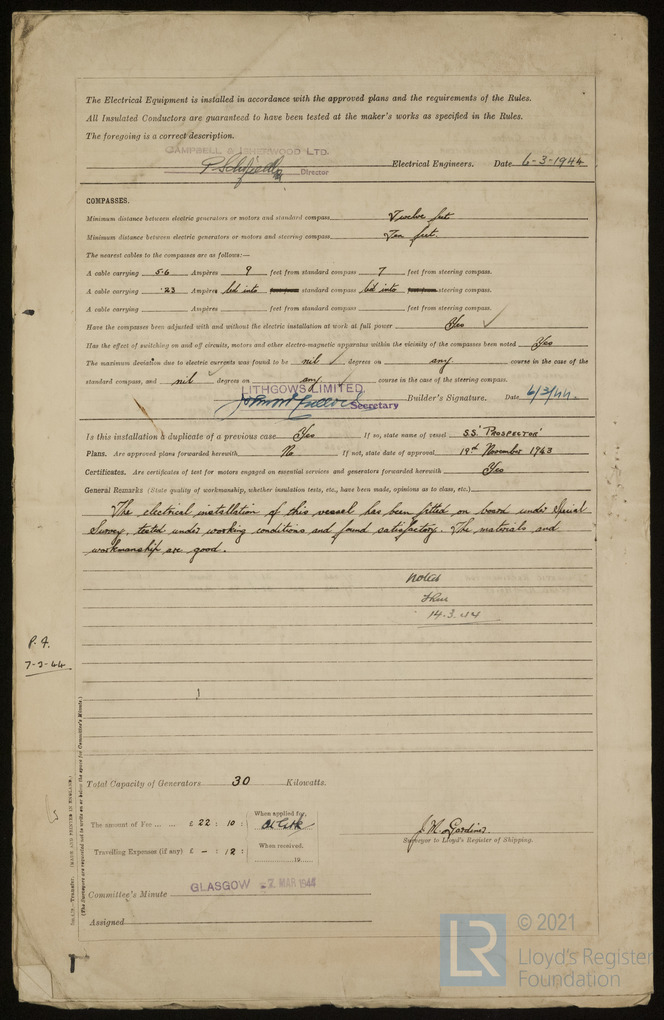 The Electrical Equipment is installed in accordance with the approved plans and the requirements of the Rules.
All Insulated Conductors are guaranteed to have been tested at the maker's works as specified in the Rules.
The foregoing is a correct description.
CAMPBELL & ISHERWOOD LTD.
Electrical Engineers. Date 6-3-1944
Director
COMPASSES.
Minimum distance between electric generators or motors and standard compass Twelve feet
Minimum distance between electric generators or motors and steering compass Ten feet.
The nearest cables to the compasses are as follows:—
A cable carrying 5.6 Ampères 9 feet from standard compass 7 feet from steering compass.
A cable carrying .23 Ampères led into standard compass led into steering compass.
A cable carrying Ampères feet from standard compass feet from steering compass.
Have the compasses been adjusted with and without the electric installation at work at full power Yes ✓
Has the effect of switching on and off circuits, motors and other electro-magnetic apparatus within the vicinity of the compasses been noted Yes
The maximum deviation due to electric currents was found to be nil ✓ degrees on any course in the case of the
standard compass, and nil ✓ degrees on any ✓ course in the case of the steering compass.
LITHGOWS LIMITED.
Secretary Builder's Signature. Date 6/3/44.
Is this installation a duplicate of a previous case Yes If so, state name of vessel S.S. 'PROSPECTOR'
Plans. Are approved plans forwarded herewith No If not, state date of approval 19th November 1943
Certificates. Are certificates of test for motors engaged on essential services and generators forwarded herewith Yes
General Remarks (State quality of workmanship, whether insulation tests, etc., have been made, opinions as to class, etc.)
The electrical installation of this vessel has been fitted on board under Special
Survey, tested under working conditions and found satisfactory. The materials and
workmanship are good.
Noted
14.3.44
P.A.
7-3-44
Total Capacity of Generators 30 Kilowatts.
The amount of Fee ... ... £ 22 : 10 :
When applied for,
Travelling Expenses (if any) £ - : 12 :
When received.
19
J. M. Gardiner.
Surveyor to Lloyd's Register of Shipping.
Committee's Minute GLASGOW 7 MAR 1944
Assigned
Transfer. (MADE AND PRINTED IN ENGLAND.)
(The Surveyors are requested not to write on or below the space for Committee's Minute.)
© 2021
LR
Lloyd's Register
Foundation